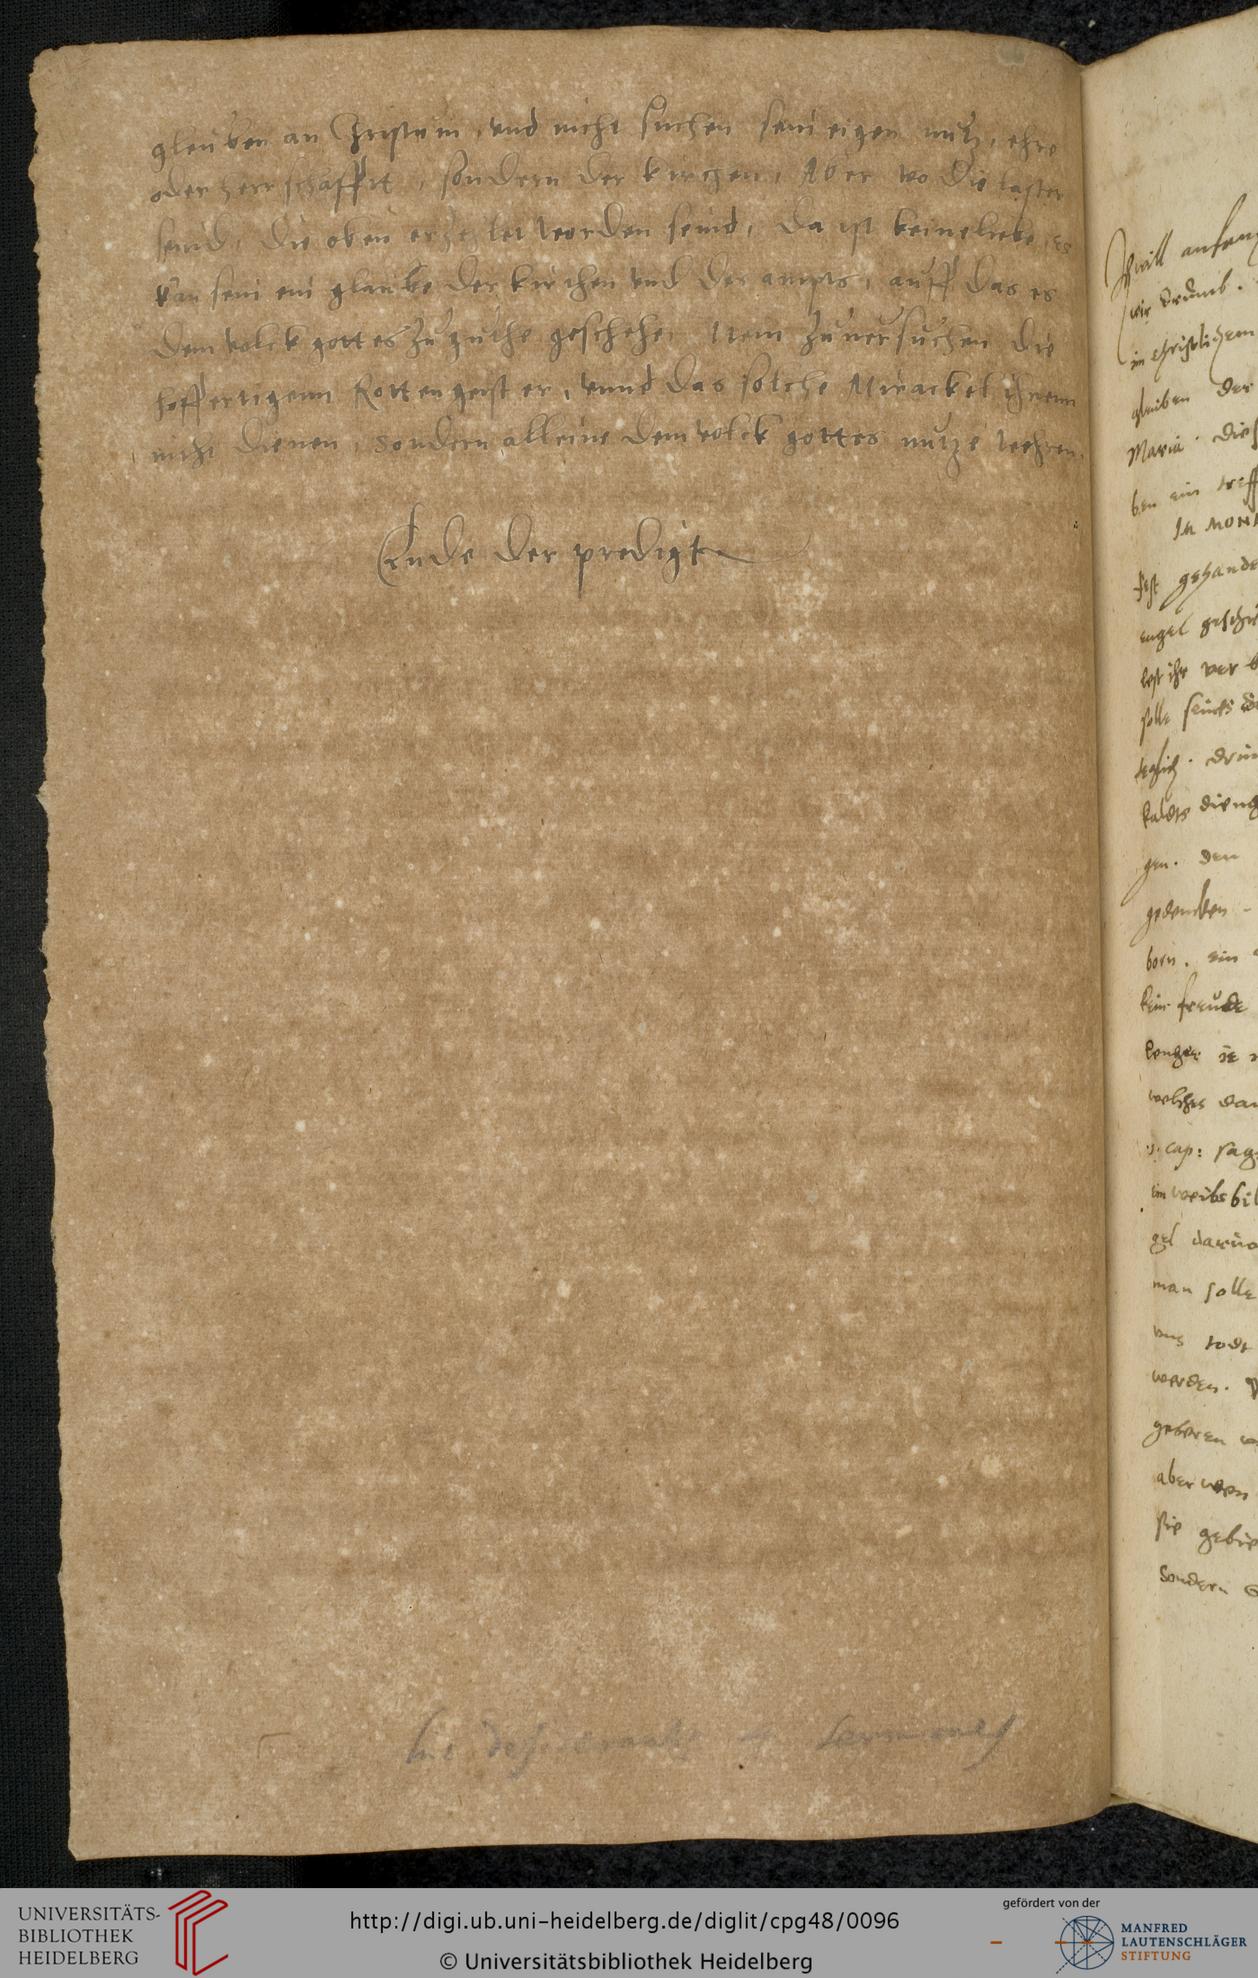 glauben an Christum, vnd nicht suchen sein eigen nutz, ehre
oder herrschafft, sondern der kirchen, Aber wo die laster
seind, die oben erzehlet worden seind, da ist keine liebe, es
kan sein ein glaube der kirchen vnd des ampts, auff das es
dem volck gottes zu guthe geschehe, Item zuuersuchen die
hoffertigenn Rottengeister, vnnd das solche Mirackel ihnenn
nicht dienen, sondern alleine dem volck gottes nutze wehren.
Ende der predigt
hic 4 sermones
Ich will anfeng
in christlichem
glauben der
Maria. dies
ben ein treff
IN MONT
fest gehande
engel geschi
solle
gen. den
gedencken
born. ein
kein freude
lenger ie
welches dar
cap: sag
ein weibsbil
gel
man solle
vns todt
werden.
geberen
aber wen
sie gebie
sondern
UNIVERSITÄTS-
BIBLIOTHEK
HEIDELBERG
http://digi.ub.uni-heidelberg.de/diglit/cpg48/0096
© Universitätsbibliothek Heidelberg
gefördert von der
MANFRED
LAUTENSCHLÄGER
STIFTUNG